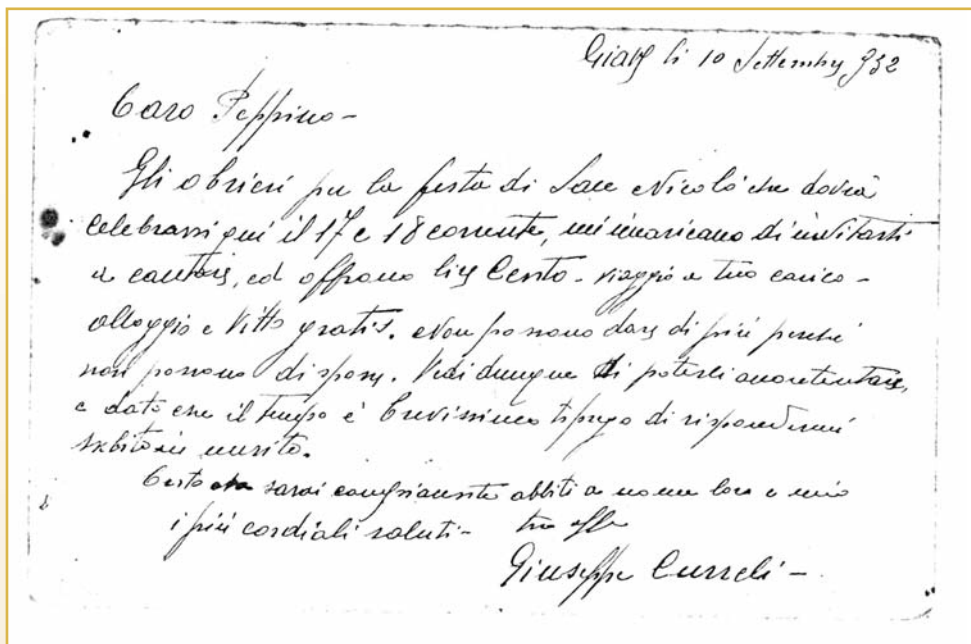 Giave li 10 Settembre 932
Caro Peppino -
Gli obrieri per la festa di San Nicolò che dovrà
celebrarsi qui il 17 e 18 corrente, mi incaricano di invitarti
a cantare, ed offrono lire Cento - viaggio a tuo carico -
alloggio e Vitto gratis. Non possono dare di più perché
non possono disporre. Vedi dunque di poterli accontentare,
e dato che il tempo è brevissimo ti prego di rispondermi
subito in merito.
Certo sarai compiacente abbiti a nome loro e mio
i più cordiali saluti - tuo
Giuseppe Curreli -